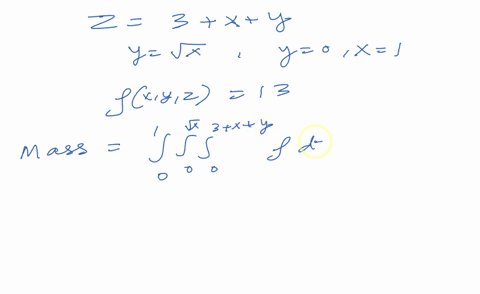 Z = 3 + x + y
y = √x , y = 0 , x = 1
f(x,y,z) = 13
Mass = ∫₀¹ ∫₀^√x ∫₀^3+x+y f d